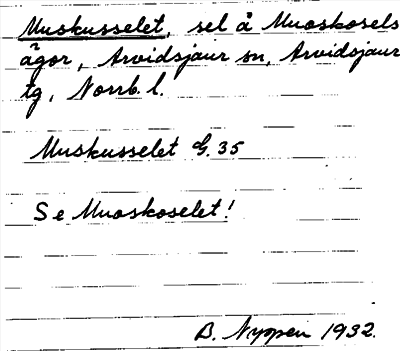 Muskusselet, sel å Muoskosels
ägor, Arvidsjaur sn, Arvidsjaur
tg, Norrb. l.
Muskusselet G. 35
Se Muoskoselet!
B. Nyppen 1932.